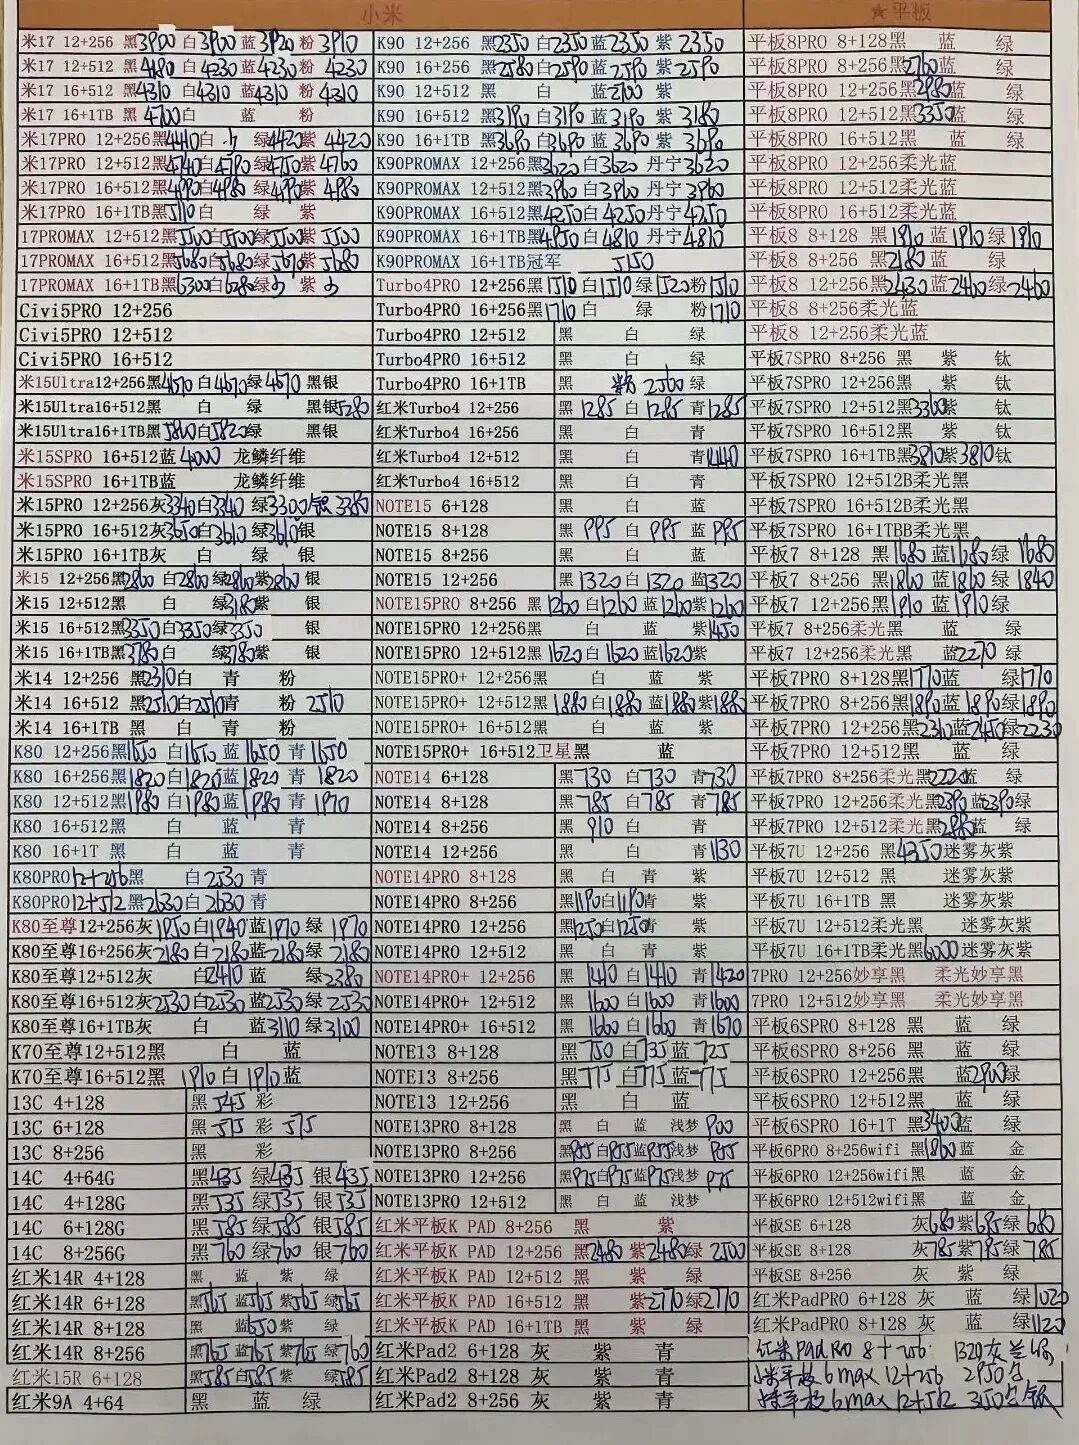 小米
★平板
米17 12+256 黑3900 白3900 蓝3920 粉3910
米17 12+512 黑4180 白4230 蓝4230 粉4230
米17 16+512 黑4310 白4310 蓝4310 粉4310
米17 16+1TB 黑4700白 蓝 粉
米17PRO 12+256黑4410白 绿4420紫4420
米17PRO 12+512黑4740白4790绿4750紫4760
米17PRO 16+512黑4990白4980绿4990紫4980
米17PRO 16+1TB黑5510白 绿 紫
17PROMAX 12+512黑5500白5500绿5500紫5500
17PROMAX 16+512黑5680白5680绿5670紫5680
17PROMAX 16+1TB黑6300白6280绿 紫
Civi5PRO 12+256
Civi5PRO 12+512
Civi5PRO 16+512
米15Ultra12+256黑4670白4670绿4670 黑银
米15Ultra16+512黑 白 绿 黑银5280
米15Ultra16+1TB黑5800白5820绿 黑银
米15SPRO 16+512蓝4000 龙鳞纤维
米15SPRO 16+1TB蓝 龙鳞纤维
米15PRO 12+256灰3340白3340 绿3300银3380
米15PRO 16+512灰3650白3610绿3610银
米15PRO 16+1TB灰 白 绿 银
米15 12+256黑2860 白2860绿2860紫2860 银
米15 12+512黑 白 绿3180紫 银
米15 16+512黑3350白3350绿3350 银
米15 16+1TB黑3780白 绿3780紫 银
米14 12+256 黑2310白 青 粉
米14 16+512 黑2510白2510青 粉 2510
米14 16+1TB 黑 白 青 粉
K80 12+256黑1650 白1650 蓝1650 青1650
K80 16+256黑1820 白1820蓝1820 青 1820
K80 12+512黑1980 白1980蓝1980 青 1970
K80 16+512黑 白 蓝 青
K80 16+1T 黑 白 蓝 青
K80PRO12+256黑 白2530青
K80PRO12+512黑2630白2630青
K80至尊12+256灰1950白1940蓝1970 绿 1970
K80至尊16+256灰2180白2180蓝2180 绿 2180
K80至尊12+512灰 白2410蓝 绿2380
K80至尊16+512灰2530白2530蓝2530 绿 2530
K80至尊16+1TB灰 白 蓝3110绿3100
K70至尊12+512黑 白 蓝
K70至尊16+512黑 1910白1910蓝
13C 4+128 黑545彩
13C 6+128 黑575彩575
13C 8+256 黑 彩
14C 4+64G 黑435绿435 银435
14C 4+128G 黑535绿535 银535
14C 6+128G 黑585绿585 银585
14C 8+256G 黑760绿760 银760
红米14R 4+128 黑 蓝 紫 绿
红米14R 6+128 黑565蓝565紫565绿565
红米14R 8+128 黑 蓝650紫 绿
红米14R 8+256 黑765蓝765紫765绿760
红米15R 6+128 黑585白585紫 绿585
红米9A 4+64 黑 蓝 绿
K90 12+256 黑2350白2350蓝2350 紫2350
K90 16+256 黑2580白2590蓝2590 紫2590
K90 12+512 黑 白 蓝2700 紫
K90 16+512 黑3190白3190蓝3190 紫3180
K90 16+1TB 黑3690白3690蓝3690 紫3690
K90PROMAX 12+256黑3620白3620丹宁3620
K90PROMAX 12+512黑3960白3960丹宁3960
K90PROMAX 16+512黑4250白4250丹宁4250
K90PROMAX 16+1TB黑4850白4810丹宁4810
K90PROMAX 16+1TB冠军 5150
Turbo4PRO 12+256黑1510白1510绿1520粉1510
Turbo4PRO 16+256黑1710白 绿 粉1710
Turbo4PRO 12+512 黑 白 绿
Turbo4PRO 16+512 黑 白 绿
Turbo4PRO 16+1TB 黑 粉2560绿
红米Turbo4 12+256 黑1285白1285青1285
红米Turbo4 16+256 黑 白 青
红米Turbo4 12+512 黑 白 青1440
红米Turbo4 16+512 黑 白 青
NOTE15 6+128 黑 白 蓝
NOTE15 8+128 黑995白995蓝995
NOTE15 8+256 黑 白 蓝
NOTE15 12+256 黑1320白1320蓝1320
NOTE15PRO 8+256 黑1260白1260蓝1260紫1260
NOTE15PRO 12+256 黑 白 蓝 紫1450
NOTE15PRO 12+512 黑1620白1620蓝1620紫
NOTE15PRO+ 12+256黑 白 蓝 紫
NOTE15PRO+ 12+512黑1880白1880蓝1880紫1880
NOTE15PRO+ 16+512黑 白 蓝 紫
NOTE15PRO+ 16+512卫星黑 蓝
NOTE14 6+128 黑730 白730 青730
NOTE14 8+128 黑785 白785 青785
NOTE14 8+256 黑910 白 青
NOTE14 12+256 黑 白 青1130
NOTE14PRO 8+128 黑 白 青 紫
NOTE14PRO 8+256 黑1190白1190青 紫
NOTE14PRO 12+256 黑1250白1250青 紫
NOTE14PRO 12+512 黑 白 青 紫
NOTE14PRO+ 12+256 黑1410白1410 青1420
NOTE14PRO+ 12+512 黑1600白1600 青1600
NOTE14PRO+ 16+512 黑1660白1660 青1670
NOTE13 8+128 黑750白735蓝725
NOTE13 8+256 黑775白775蓝775
NOTE13 12+256 黑 白 蓝
NOTE13PRO 8+128 黑 白 蓝 浅梦 900
NOTE13PRO 8+256 黑955白955蓝955浅梦 955
NOTE13PRO 12+256 黑975白975蓝975浅梦 975
NOTE13PRO 12+512 黑 白 蓝 浅梦
红米平板K PAD 8+256 黑 紫
红米平板K PAD 12+256 黑2480 紫2480绿 2500
红米平板K PAD 12+512 黑 紫 绿
红米平板K PAD 16+512 黑 紫2770绿2770
红米平板K PAD 16+1TB 黑 紫 绿
红米Pad2 6+128 灰 紫 青
红米Pad2 8+128 灰 紫 青
红米Pad2 8+256 灰 紫 青
平板8PRO 8+128黑 蓝 绿
平板8PRO 8+256黑2760蓝 绿
平板8PRO 12+256黑2980蓝 绿
平板8PRO 12+512黑3350蓝 绿
平板8PRO 16+512黑 蓝 绿
平板8PRO 12+256柔光蓝
平板8PRO 12+512柔光蓝
平板8PRO 16+512柔光蓝
平板8 8+128 黑1910 蓝1910 绿1910
平板8 8+256 黑2180蓝 绿
平板8 12+256黑2430蓝2460绿2460
平板8 8+256柔光蓝
平板8 12+256柔光蓝
平板7SPRO 8+256 黑 紫 钛
平板7SPRO 12+256黑 紫 钛
平板7SPRO 12+512黑3360紫 钛
平板7SPRO 16+512黑 紫 钛
平板7SPRO 16+1TB黑3810紫3810钛
平板7SPRO 12+512B柔光黑
平板7SPRO 16+512B柔光黑
平板7SPRO 16+1TBB柔光黑
平板7 8+128 黑1680蓝1680绿1680
平板7 8+256 黑1860蓝1860绿1840
平板7 12+256黑1910 蓝1910绿
平板7 8+256柔光黑 蓝 绿
平板7 12+256柔光黑 蓝2270 绿
平板7PRO 8+128黑1770蓝 绿1770
平板7PRO 8+256黑1890蓝1890绿1890
平板7PRO 12+256黑2310蓝2450绿2230
平板7PRO 12+512黑 蓝 绿
平板7PRO 8+256柔光黑2220蓝 绿
平板7PRO 12+256柔光黑2390蓝2390绿
平板7PRO 12+512柔光黑2880蓝 绿
平板7U 12+256 黑4350迷雾灰紫
平板7U 12+512 黑 迷雾灰紫
平板7U 16+1TB 黑 迷雾灰紫
平板7U 12+512柔光黑 迷雾灰紫
平板7U 16+1TB柔光黑6000迷雾灰紫
7PRO 12+256妙享黑 柔光妙享黑
7PRO 12+512妙享黑 柔光妙享黑
平板6SPRO 8+128 黑 蓝 绿
平板6SPRO 8+256 黑 蓝 绿
平板6SPRO 12+256黑 蓝2900绿
平板6SPRO 12+512黑 蓝 绿
平板6SPRO 16+1T 黑3400蓝 绿
平板6PRO 8+256wifi 黑1860蓝 金
平板6PRO 12+256wifi黑 蓝 金
平板6PRO 12+512wifi黑 蓝 金
平板SE 6+128 灰680紫685绿 680
平板SE 8+128 灰785紫785绿 785
平板SE 8+256 灰 紫 绿
红米PadPRO 6+128 灰 蓝 绿1020
红米PadPRO 8+128 灰 蓝 绿1120
红米Pad Pro 8+256 1320灰兰绿
小米平板6max 12+256 2950
小米平板6max 12+512 3150 银